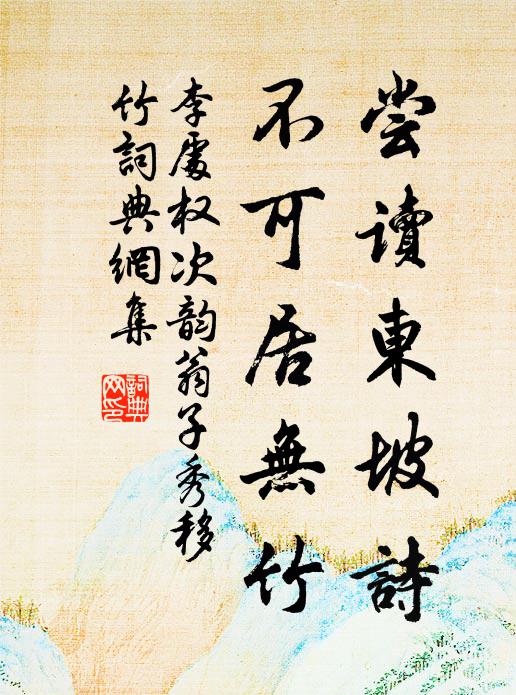 尝读東坡詩
不可居無竹
李處权次韵翁子秀移
竹詞典網集
詞典
网印